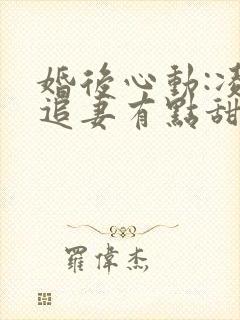 婚後心動:凌
追妻有點甜
羅偉杰